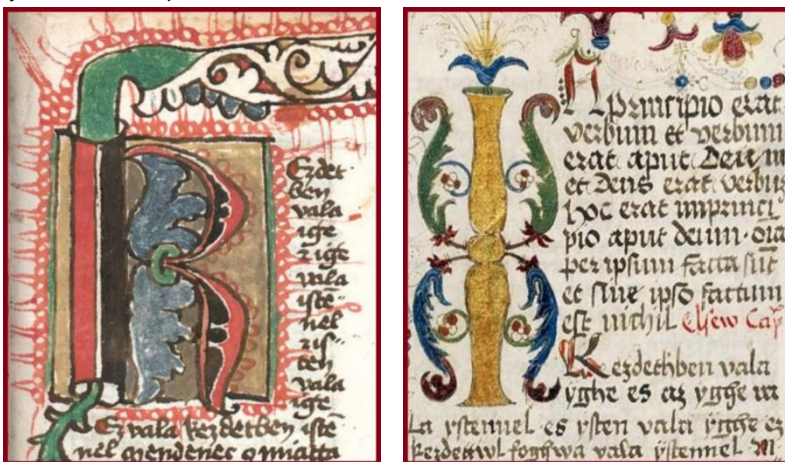 K
Ezdet
ben
vala
ige
z ige
vala
iste
nel
z is
ten
vala
ige
Ez vala kezdetben iste
nel mendenec o miatta
I
N principio erat
verbum et verbum
erat aput Deum
et Deus erat verbum
hoc erat in princi
pio aput deum. oīa
per ipsum facta sūt
et sine ipso factum
est nichil Elsew Cap
Kezdethben vala
yghe es az yghe va
la ystennel es ysten vala yghe ez
kezdettwl foghwa vala ystennel M